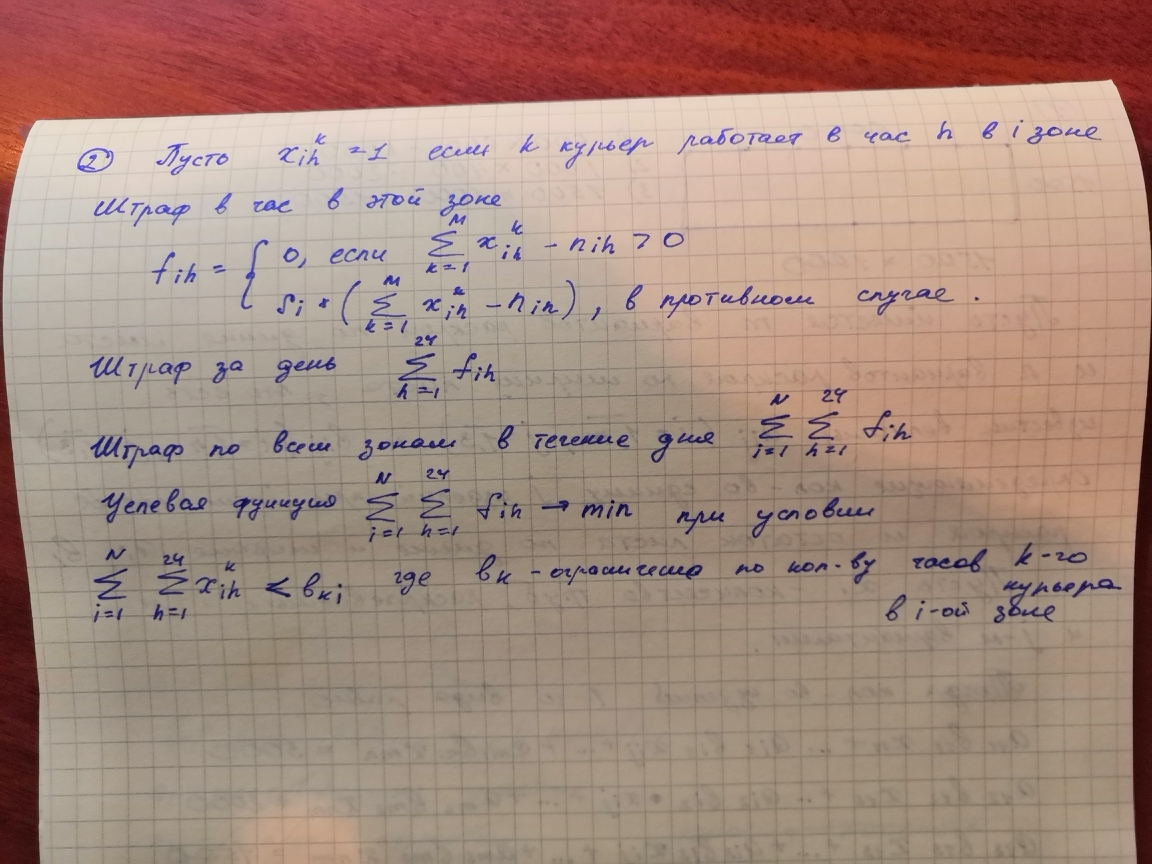 ② Пусть x_{ih}^k = 1 если k курьер работает в час h в i зоне
Штраф в час в этой зоне
f_{ih} = { 0, если \sum_{k=1}^{M} x_{ih}^k - n_{ih} > 0
S_i * ( \sum_{k=1}^{M} x_{ih}^k - n_{ih} ) , в противном случае .
Штраф за день \sum_{h=1}^{24} f_{ih}
Штраф по всем зонам в течение дня \sum_{i=1}^{N} \sum_{h=1}^{24} f_{ih}
Целевая функция \sum_{i=1}^{N} \sum_{h=1}^{24} f_{ih} → min при условии
\sum_{i=1}^{N} \sum_{h=1}^{24} x_{ih}^k ≤ b_{ki} где b_k - ограничение по кол-ву часов k-го
курьера
в i-ой зоне